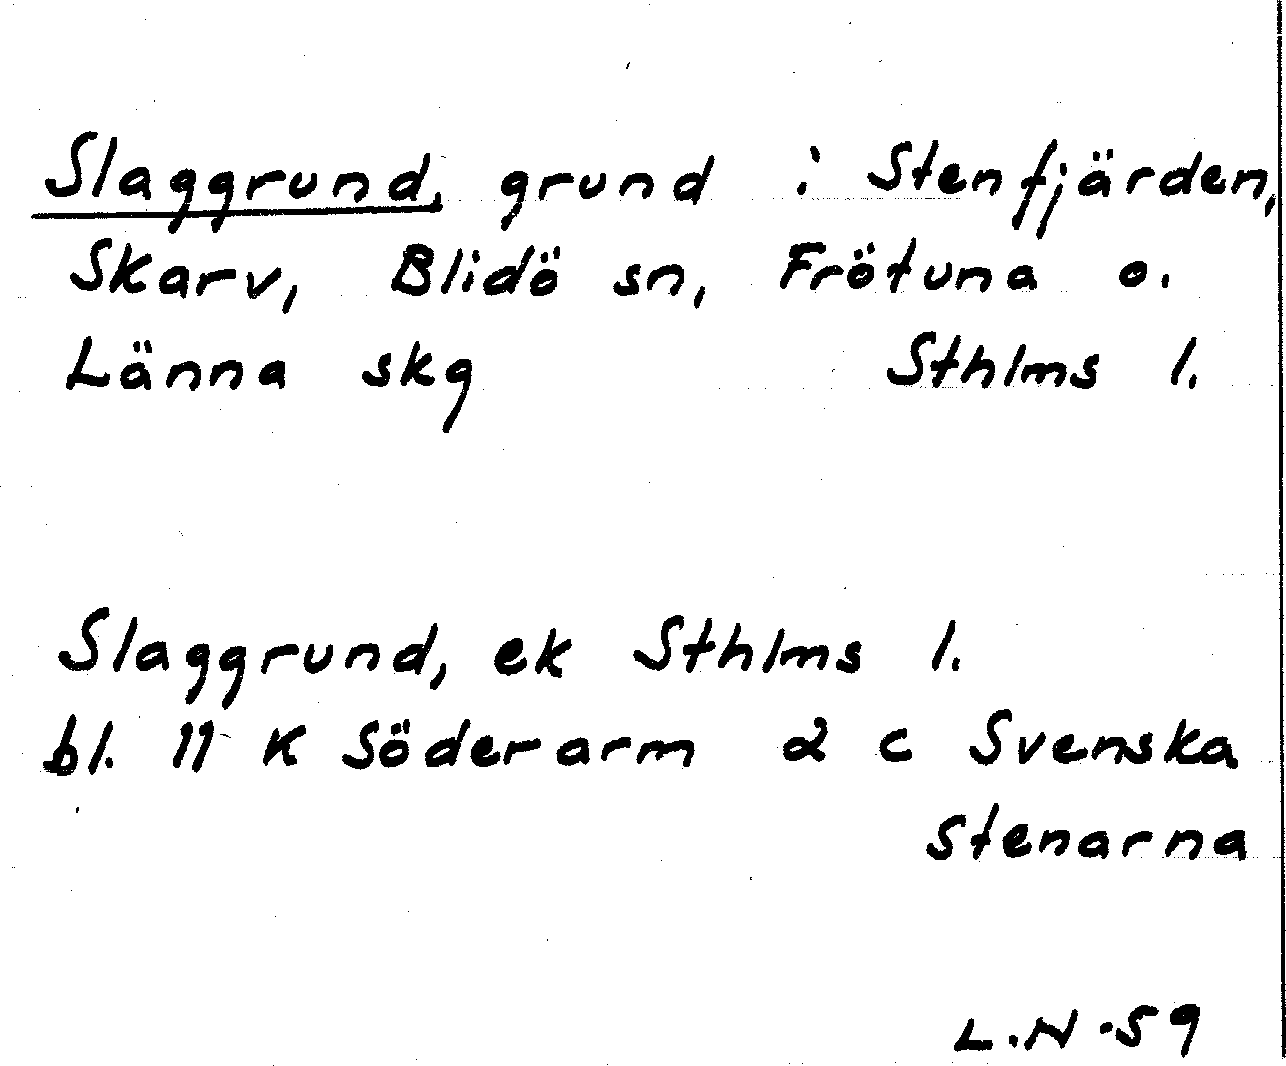 Slaggrund, grund i Stenfjärden,
Skarv, Blidö sn, Frötuna o.
Länna skg Sthlms l.
Slaggrund, ek Sthlms l.
bl. 11 K Söderarm 2 c Svenska
Stenarna
L.N -59